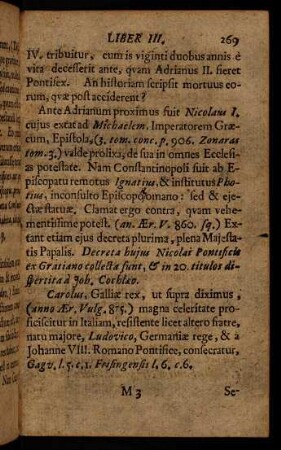 LIBER III. 269
IV. tribuitur, cum is viginti duobus annis è
vita decesserit ante, qvam Adrianus II. fieret
Pontifex. An historiam scripsit mortuus eo-
rum, qvæ post acciderent?
Ante Adrianum proximus fuit Nicolaus I.
cujus extat ad Michaelem, Imperatorem Græ-
cum, Epistola, (3. tom. conc. p. 906. Zonaras
tom. 3.) valde prolixa, de sua in omnes Ecclesi-
as potestate. Nam Constantinopoli suit ab E-
piscopatu remotus Ignatius, & institutus Pho-
tius, inconsulto Episcopo Romano: sed & eje-
ctæ statuæ. Clamat ergo contra, qvam vehe-
mentissime potest. (an. Ær. V. 860. sq.) Ex-
tant etiam ejus decreta plurima, plena Majesta-
tis Papalis. Decreta hujus Nicolai Pontificis
ex Gratiano collecta sunt, & in 20. titulos di-
spertita à Joh. Cochleo.
Carolus, Galliæ rex, ut supra diximus,
(anno Ær. Vulg. 875.) magna celeritate pro-
ficiscitur in Italiam, resistente licet altero fratre,
natu majore, Ludovico, Germaniæ rege, & a
Johanne VIII. Romano Pontifice, consecratur,
Gagv. l. 5. c. 1. Frisingensis l. 6. c. 6.
M 3 Se-